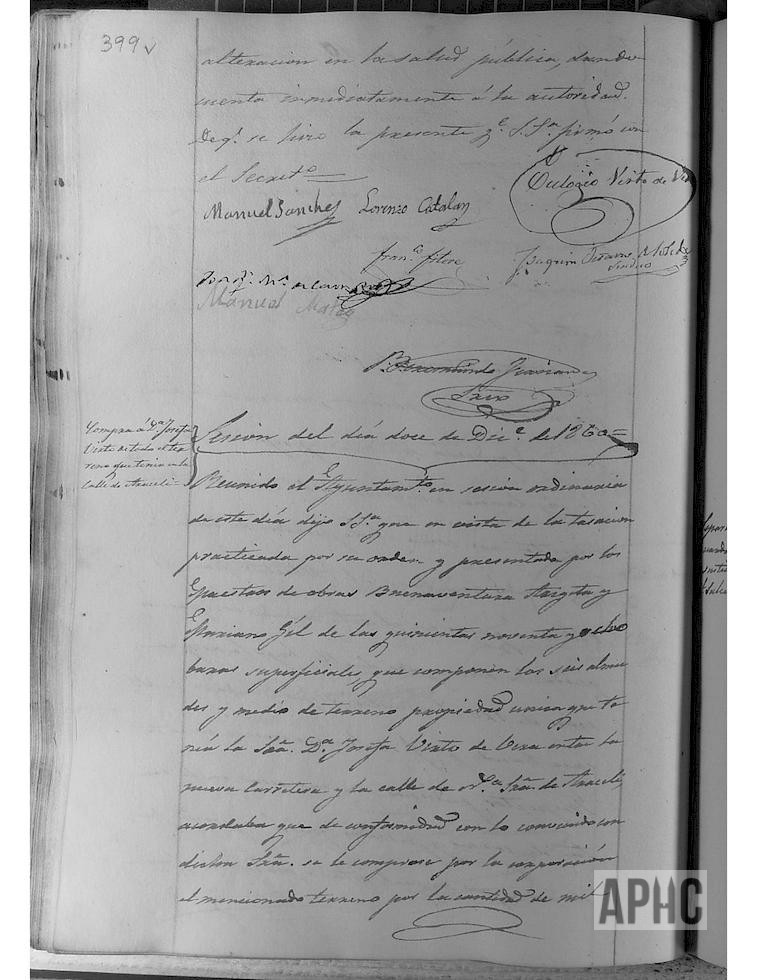 399v
alteracion en la salud pública, dando
cuenta inmediatamente á la autoridad.
De q.e se hizo la presente q.e S.Sª firmó con
el Secret.o
Manuel Sanchez Lorenzo Catalan Eulogio Virto de Vera
Fran.co
Joaquin
Sindico
Manuel Mateo
Srio
Compra á Dª Josefa
Virto de todo el ter
reno que tenia en la
Calle de Araceli =
Sesion del dia doce de Dic.e de 1860 =
Reunido el Ayuntam.to en sesion ordinaria
de este dia dijo S.Sª que en vista de la tasacion
practicada por su orden y presentada por los
Maestros de obras Buenaventura Argota y
Mariano Gil de las quinientas noventa y ocho
baras superficiales, que componen los seis almu
des y medio de terreno propiedad unica que te
nía la Srª. Dª Josefa Virto de Vera entre la
nueva Carretera y la calle de N.ª Srª de Araceli,
acordaba que de conformidad con lo convenido con
dicha Srª. se le comprase por la corporacion
el mencionado terreno por la cantidad de mil
APHC